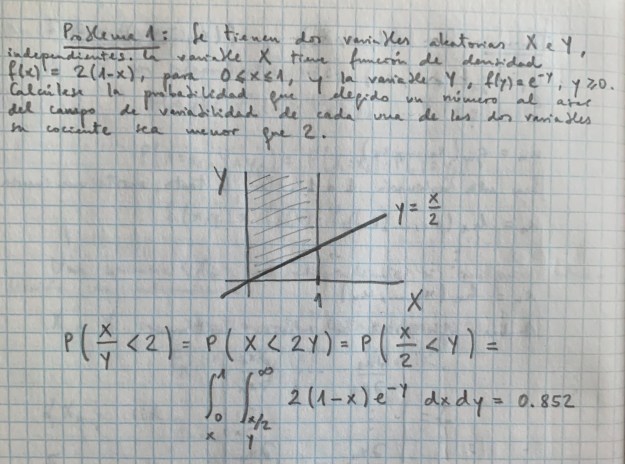 Problema 1: Se tienen dos variables aleatorias X e Y,
independientes. La variable X tiene función de densidad
f(x) = 2(1-x), para 0≤x≤1, y la variable Y, f(y)=e^-y, y≥0.
Calcúlese la probabilidad que elegido un número al azar
del campo de variabilidad de cada una de las dos variables
su cociente sea menor que 2.
Y
y = x/2
1
X
P(X/Y < 2) = P(X < 2Y) = P(X/2 < Y) =
∫_0^1 ∫_{x/2}^∞ 2(1-x)e^-y dx dy = 0.852
x y